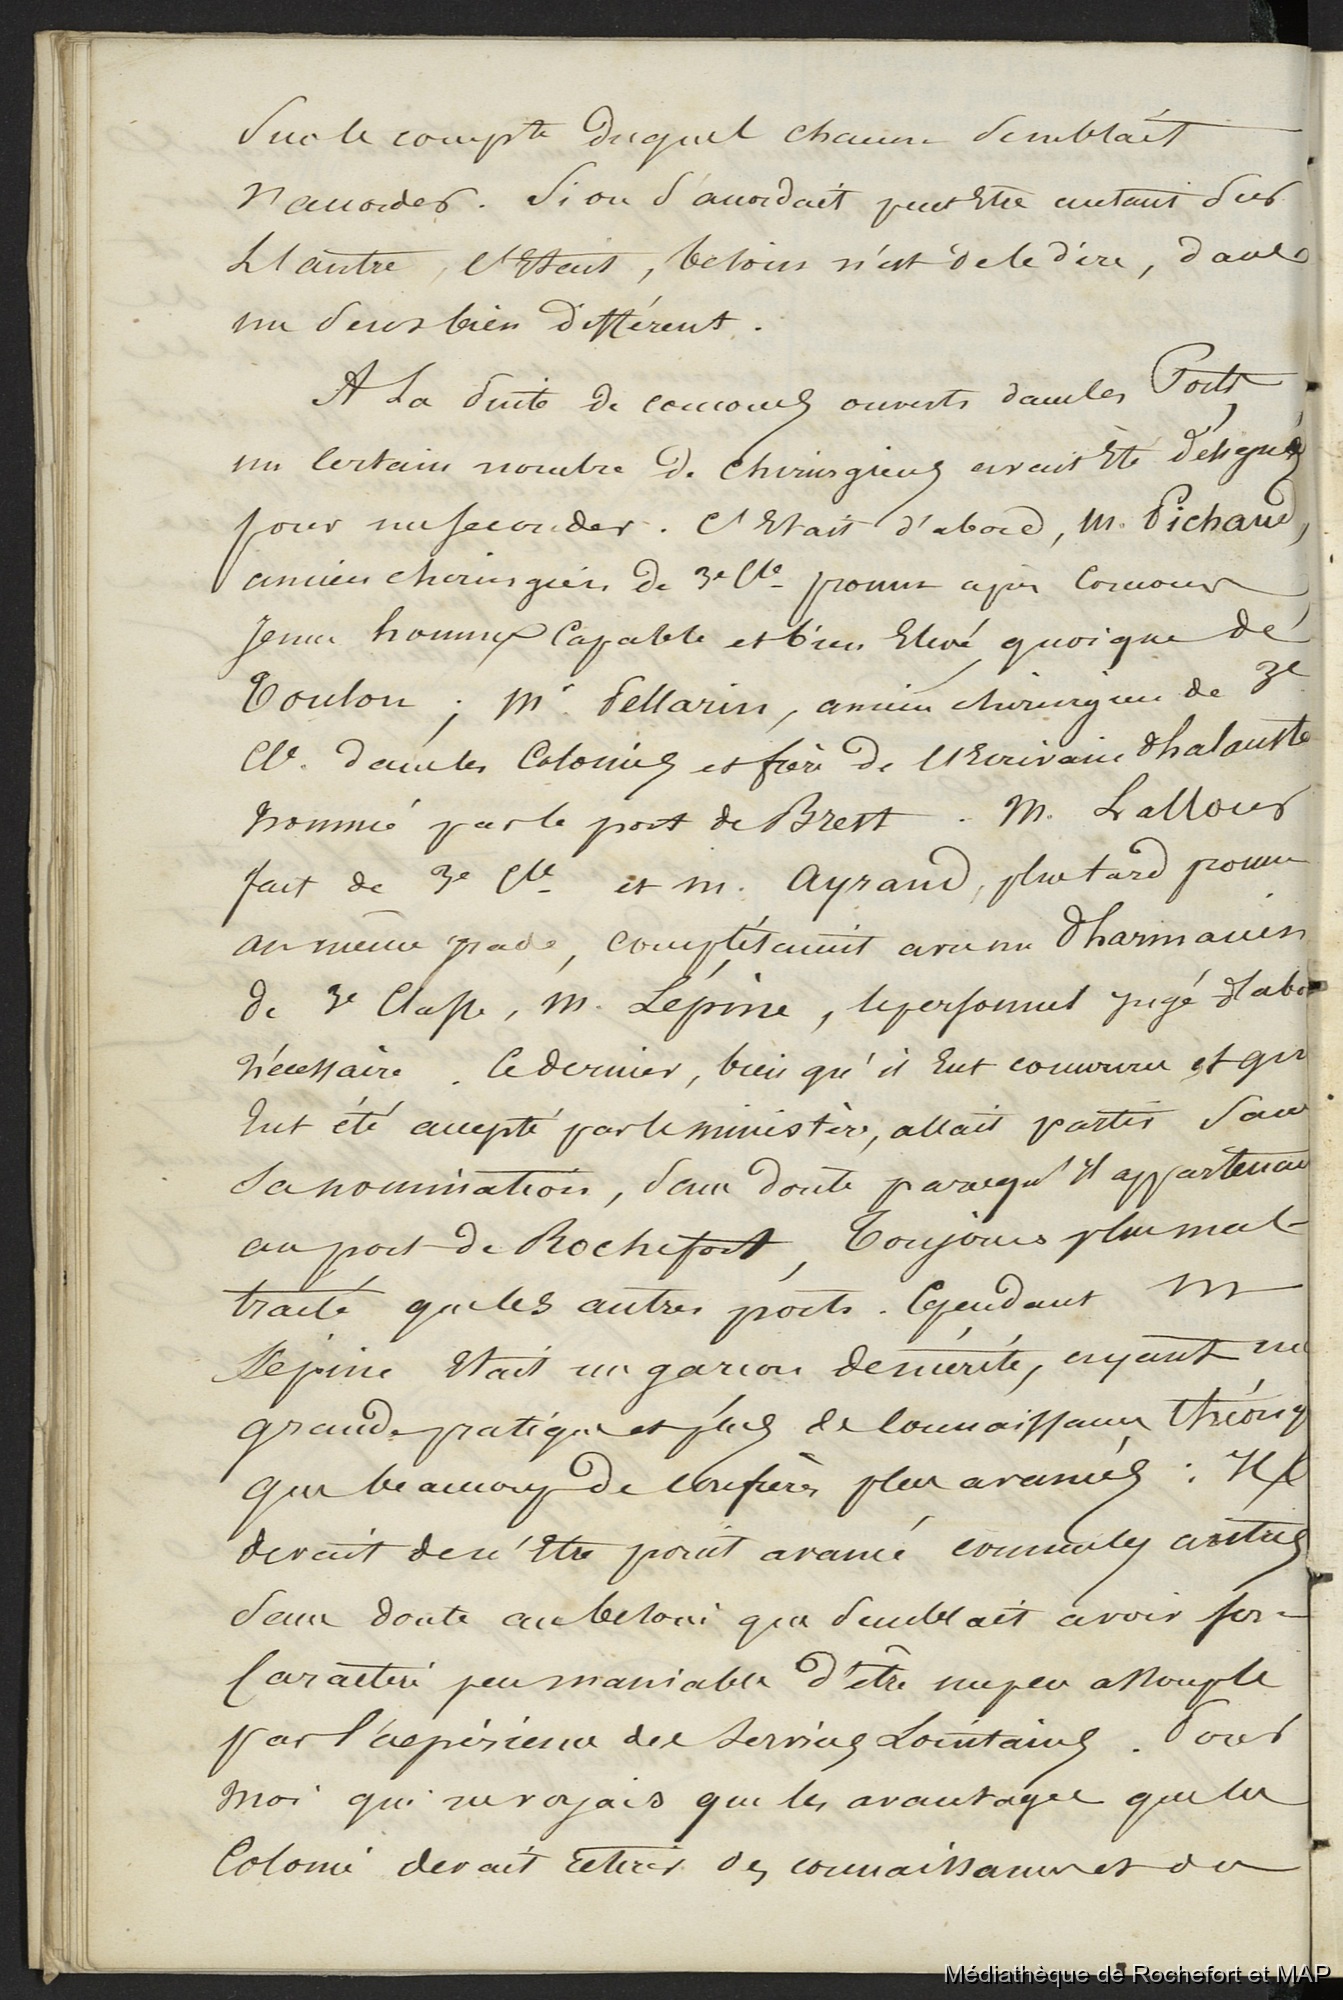 sur le compte duquel chacun semblait
s'accorder. Si on s'accordait peut être autant sur
l'autre, c'était, besoin n'est de le dire, dans
un sens bien différent.
A la suite de concours ouverts dans les Ports,
un certain nombre de chirurgiens avait été désignés
pour me seconder. C'était d'abord, M. Pichaud,
ancien chirurgien de 3e Cle promu après concours
jeune homme capable et bien élevé quoique de
Toulon ; Mr. Pellarin, ancien chirurgien de 3e
Cle. dans les Colonies et frère de l'Ecrivain Phalanste
nommé par le port de Brest. M. Lallour
fait de 3e Cle et M. Ayraud, plus tard promu
au même grade, complétaient avec un Pharmacien
de 3e Classe, M. Lépine, le personnel jugé d'abo
nécessaire. Ce dernier, bien qu'il eut concouru et qu'
eut été accepté par le ministère, allait partir sans
sa nomination, sans doute parcequ'il appartenait
au port de Rochefort, toujours plus mal
traité que les autres ports. Cependant M
Lépine était un garçon de mérite, ayant une
grande pratique et plus de connaissances théoriq
que beaucoup de confrères plus avancés : Il
devait de n'être point avancé comme les autres
sans doute au besoin que semblait avoir son
caractère peu maniable d'être un peu assoupli
par l'expérience des services lointains. Pour
moi qui ne voyais que les avantages que la
Colonie devait retirer des connaissances et du
Médiathèque de Rochefort et MAP